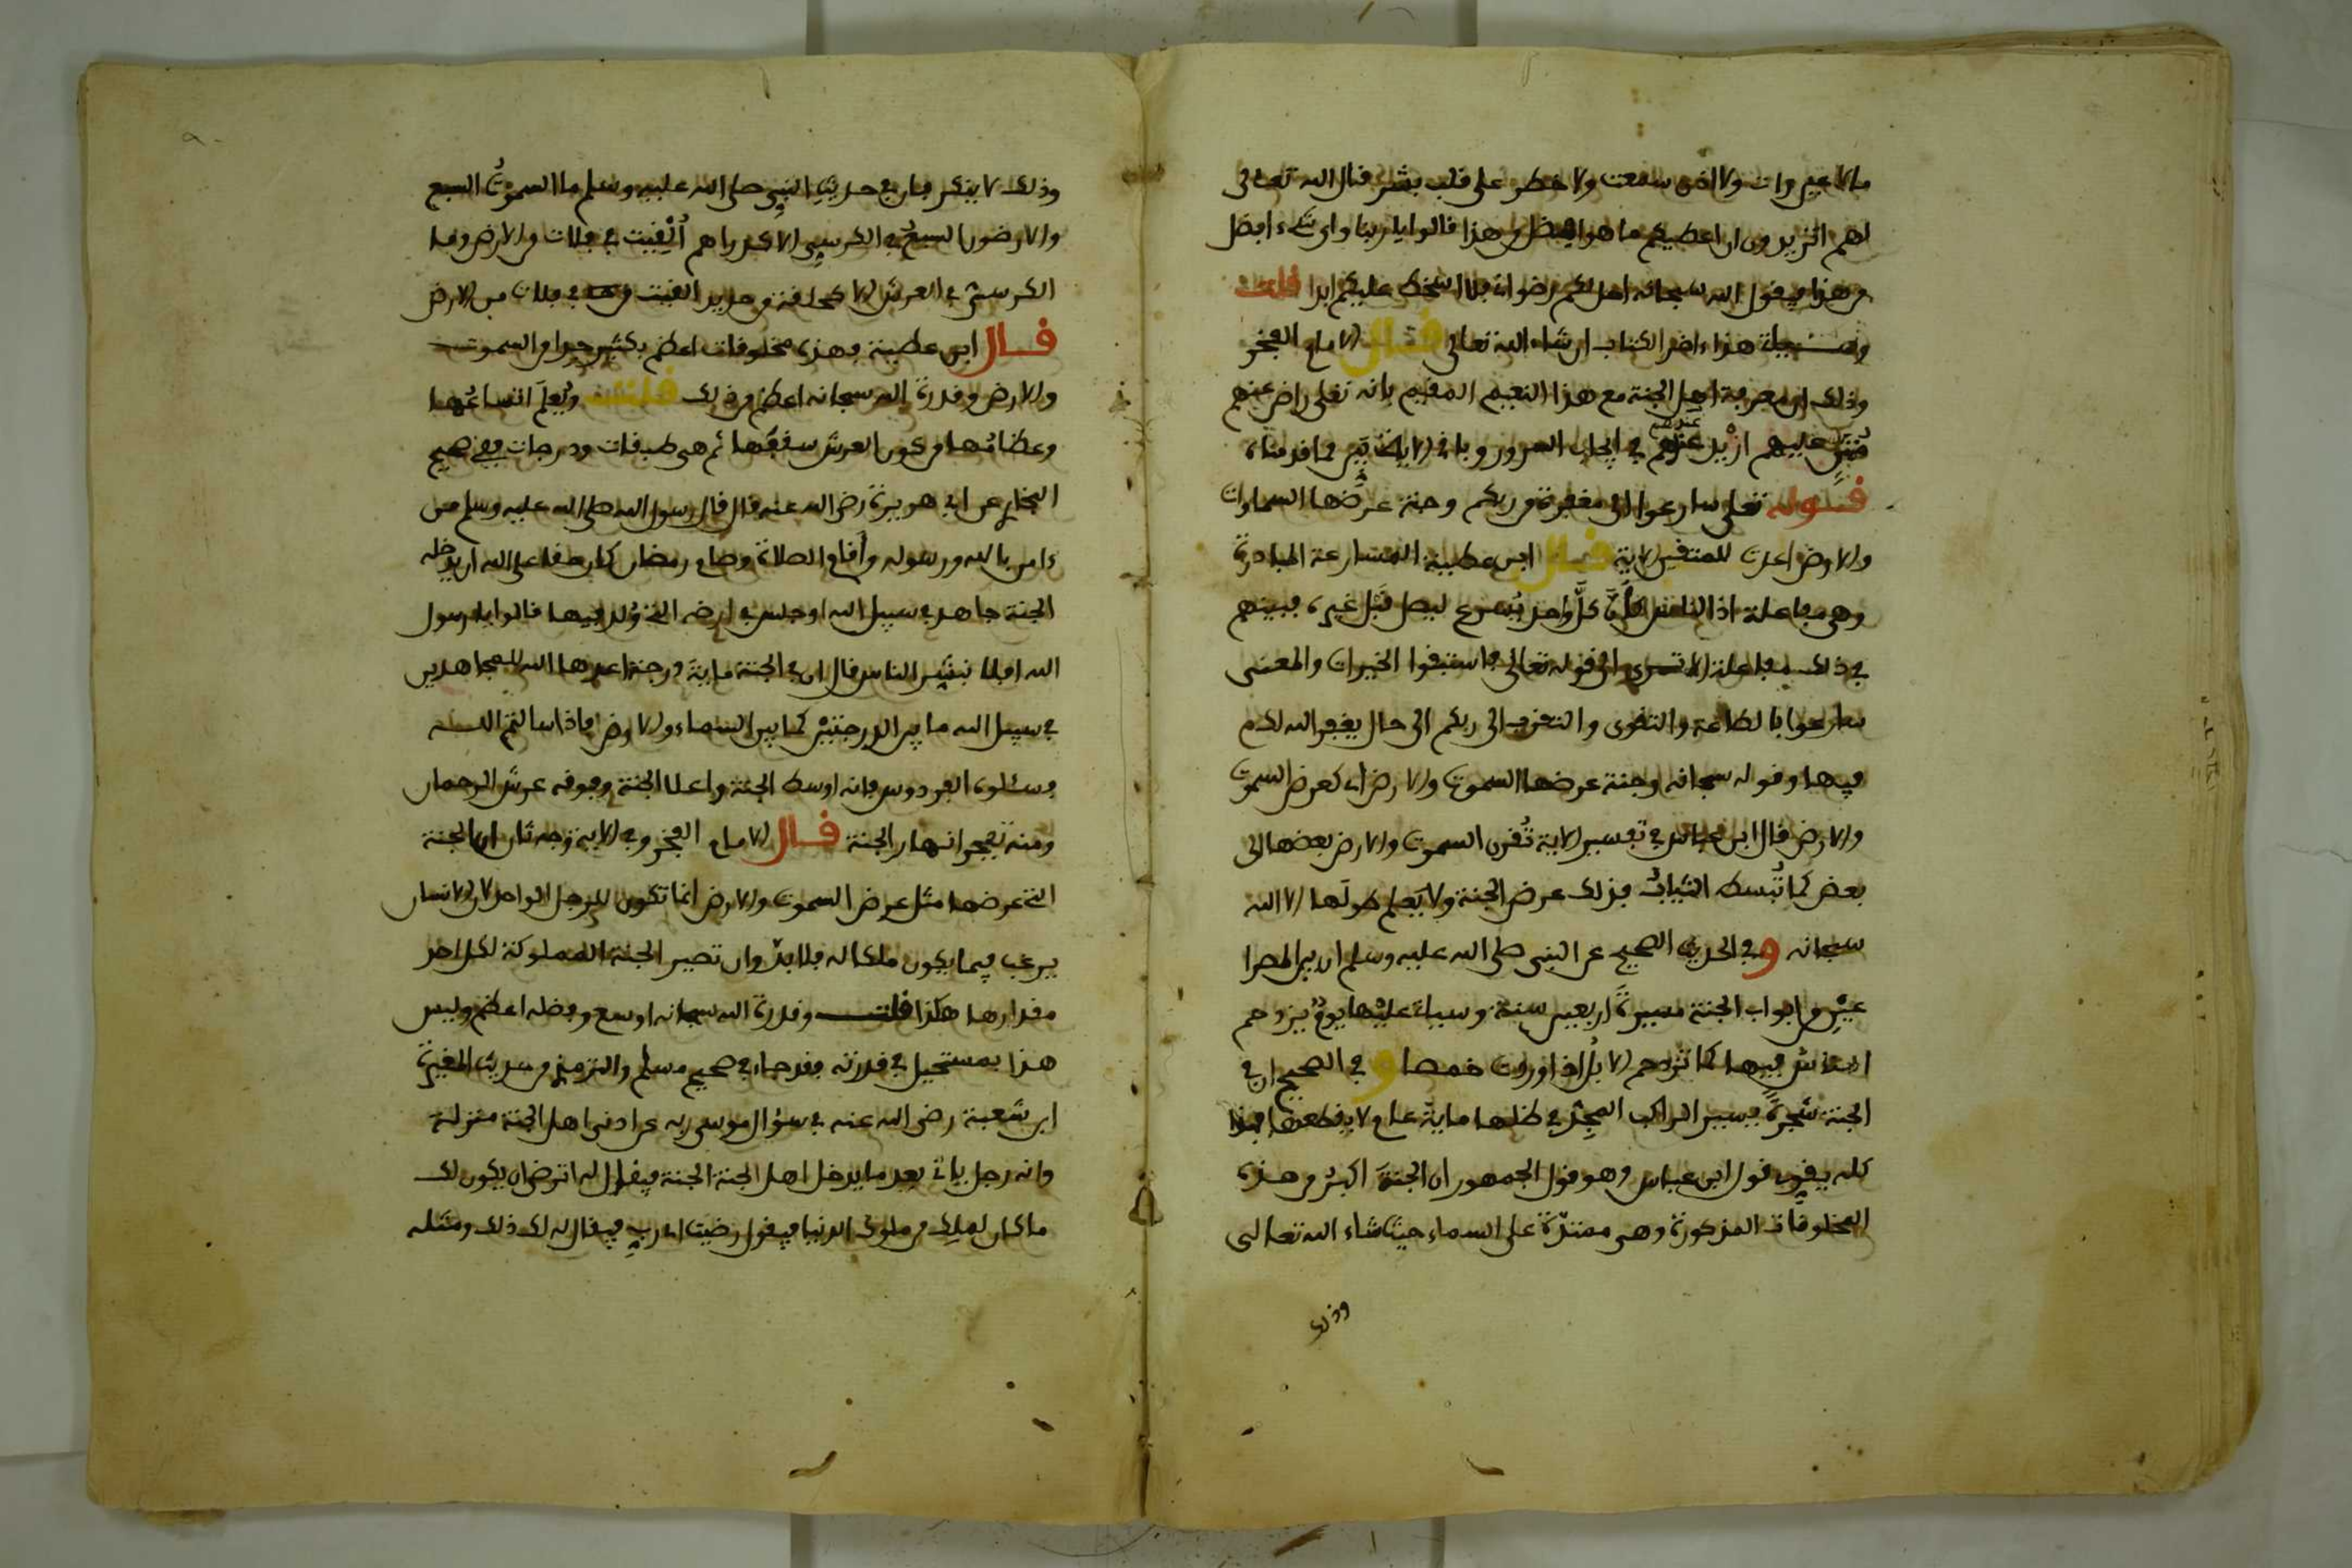 ما لا عين رات ولا اذن سمعت ولا خطر على قلب بشر فقال الله تعالى
لهم اتريدون ان اعطيكم ما هو افضل من هذا قالوا يا ربنا واي شيء افضل
من هذا فيقول الله سبحانه احل لكم رضواني فلا اسخط عليكم ابدا قلت
هذا ءاخر الكتاب ان شاء الله تعالى قال الامام الفخر
وذلك ان معرفة اهل الجنة مع هذا النعيم المقيم بانه تعلى راض عنهم
مثن عليهم ازيد عندهم في ايجاب السرور
قوله تعلى سارعوا الى مغفرة من ربكم وجنة عرضها السماوات
والارض اعدت للمتقين الاية قال ابن عطية المسارعة المبادرة
وهي مفاعلة اذ الناس كأن كل واحد يسرع ليصل قبل غيره فبينهم
في ذلك مفاعلة الا ترى الى قوله تعالى فاستبقوا الخيرات والمعنى
سارعوا بالطاعة والتقوى والتقرب الى ربكم الى حال يغفر الله لكم
فيها وقوله سبحانه وجنة عرضها السموت والارض اي كعرض السموت
والارض قال ابن عباس في تفسير الاية تقرن السموت والارض بعضها الى
بعض كما تبسط الثياب فذلك عرض الجنة ولا يعلم طولها الا الله
سبحانه وفي الحديث الصحيح عن النبي صلى الله عليه وسلم ان بين المصرا
عين من ابواب الجنة مسيرة اربعين سنة وسيأتي عليها يوم يزدحم
الناس فيها كما تزدحم الابل اذا وردت خمصا وفي الصحيح ان في
الجنة شجرة يسير الراكب المجد في ظلها ماية عام لا يقطعها فهذا
كله يقوي قول ابن عباس وهو قول الجمهور ان الجنة اكبر من هذه
المخلوقات المذكورة وهي ممتدة على السماء حيث شاء الله تعالى
وذلك
وذلك لا ينكر فان في حديث النبي صلى الله عليه وسلم ما السموت السبع
والارضون السبع في الكرسي الا كدراهم ألقيت في فلات من الارض وما
الكرسي في العرش الا كحلقة من حديد القيت في فلات من الارض
قال ابن عطية فهذه مخلوقات اعظم بكثير جدا من السموت
والارض وقدرة الله سبحانه اعظم من ذلك قلت ويعلم اتساعها
وعظمها من كون العرش سقفها ثم هي طبقات ودرجات ففي صحيح
البخاري عن ابي هريرة رضي الله عنه قال قال رسول الله صلى الله عليه وسلم من
ءامن بالله ورسوله وأقام الصلاة وصام رمضان كان حقا على الله ان يدخله
الجنة جاهد في سبيل الله او جلس في ارضه التي ولد فيها قالوا يا رسول
الله افلا نبشر الناس قال ان في الجنة ماية درجة اعدها الله للمجاهدين
في سبيل الله ما بين الدرجتين كما بين السماء والارض فاذا سالتم الله
فسئلوه الفردوس فانه اوسط الجنة واعلا الجنة وفوقه عرش الرحمان
ومنه تفجر انهار الجنة قال الامام الفخر وفي الاية وجه ثان ان الجنة
التي عرضها مثل عرض السموت والارض انما تكون للرجل الواحد لان الانسان
يرغب فيما يكون ملكا له فلا بد وان تصير الجنة المملوكة لكل احد
مقدارها هكذا قلت وقدرة الله سبحانه اوسع وفضله اعظم وليس
هذا بمستحيل في قدرته فقد جاء في صحيح مسلم والترمذي من حديث المغيرة
ابن شعبة رضي الله عنه في سؤال موسى ربه عن ادنى اهل الجنة منزلة
وانه رجل ياتي بعد ما يدخل اهل الجنة الجنة فيقال له اترضى ان يكون لك
ما كان لملك من ملوك الدنيا فيقول رضيت اي رب فيقال له لك ذلك ومثله